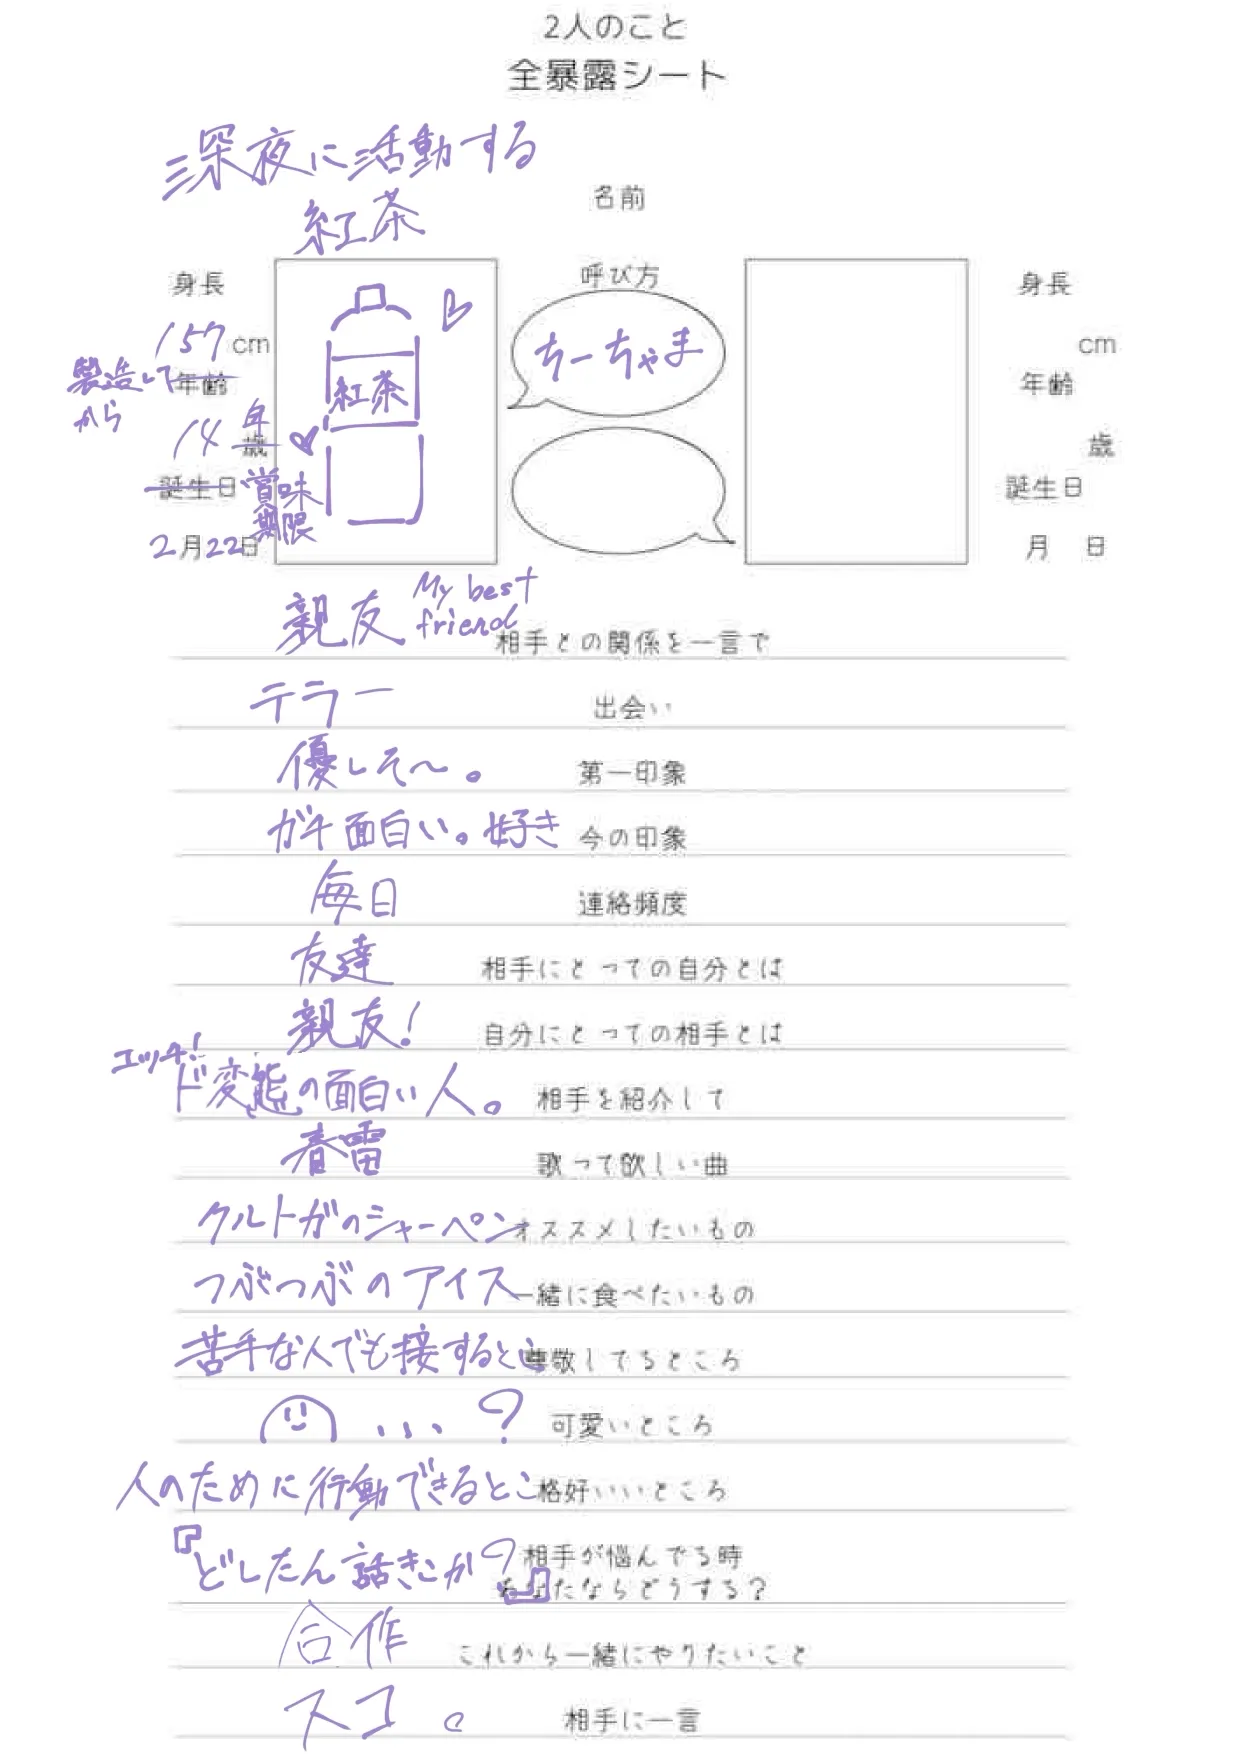 2人のこと
全暴露シート
深夜に活動する
紅茶
名前
身長
157cm
製造してから
年齢
14年
歳
誕生日
賞味期限
2月22日
紅茶
呼び方
ちーちゃま
身長
cm
年齢
歳
誕生日
月 日
親友 My best friend 相手との関係を一言で
テラー 出会い
優しそ〜。 第一印象
ガチ面白い。好き 今の印象
毎日 連絡頻度
友達 相手にとっての自分とは
親友! 自分にとっての相手とは
エッチ!
ド変態の面白い人。 相手を紹介して
春雷 歌って欲しい曲
クルトガのシャーペン オススメしたいもの
つぶつぶのアイス 一緒に食べたいもの
苦手な人でも接するとこ 尊敬してるところ
...? 可愛いところ
人のために行動できるとこ 格好いいところ
『どしたん話きこか?』 相手が悩んでる時
あなたならどうする?
合作 これから一緒にやりたいこと
スコ。 相手に一言